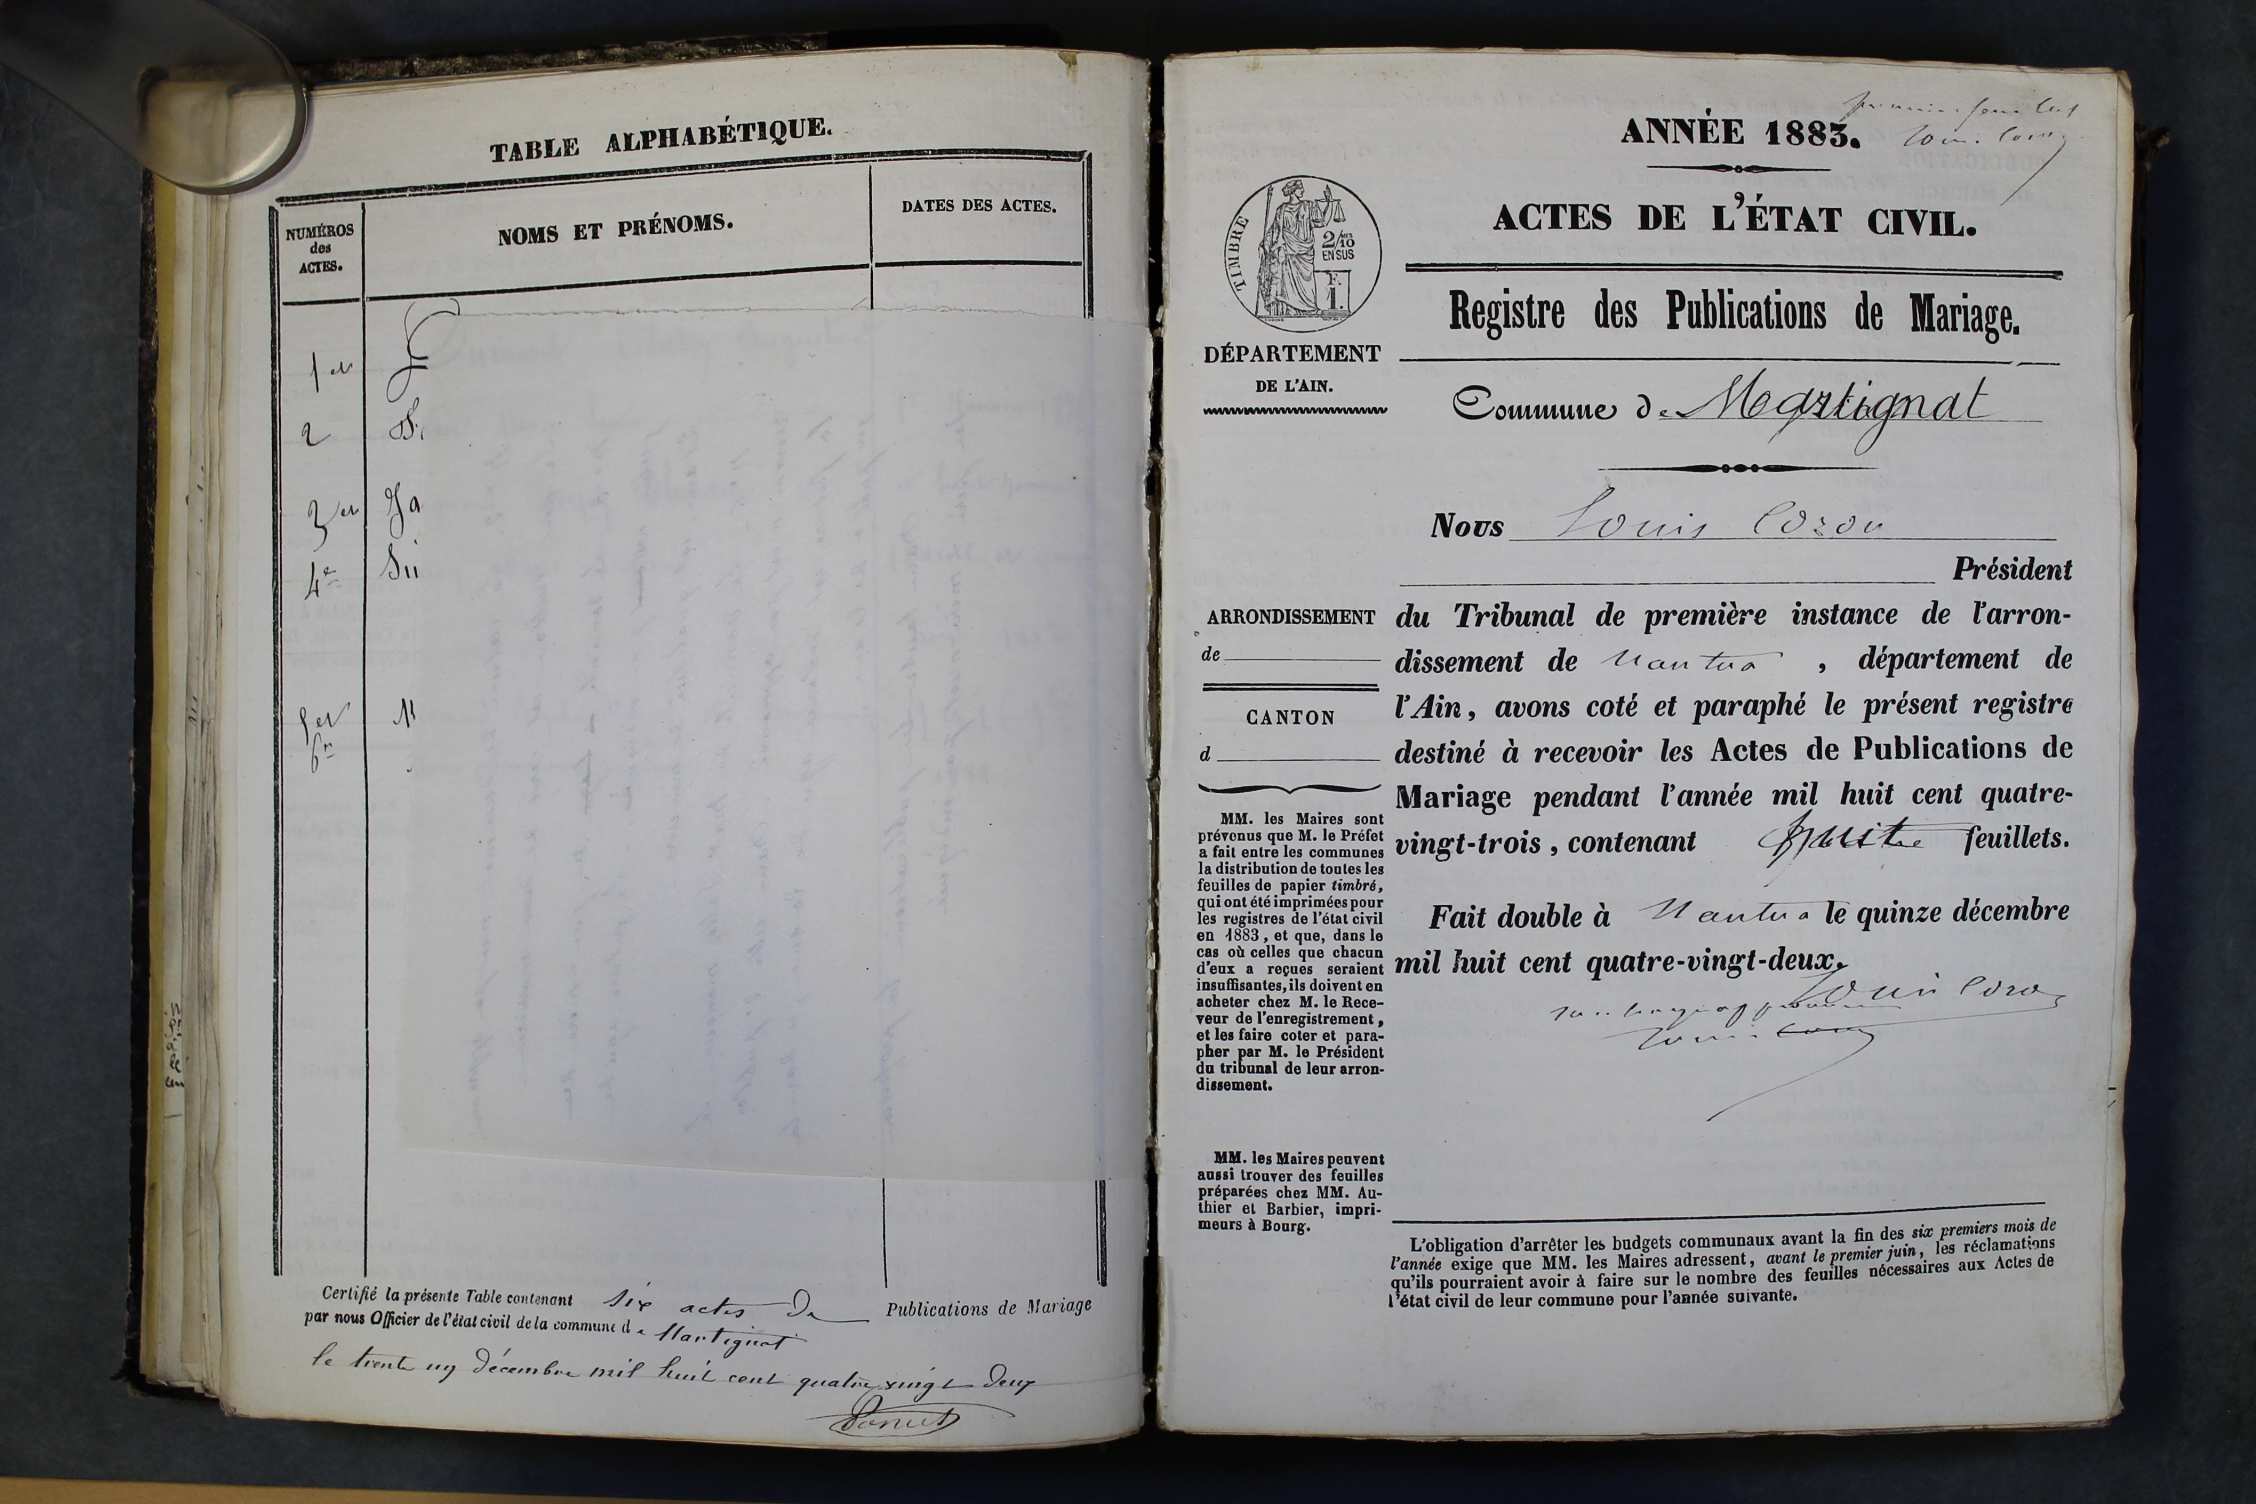 TABLE ALPHABÉTIQUE.
NUMÉROS
des
ACTES.
NOMS ET PRÉNOMS.
DATES DES ACTES.
1er
2 
3er Ja
4e
5er
6e
Certifié la présente Table contenant six actes de Publications de Mariage
par nous Officier de l'état civil de la commune de Martignat
le trente un décembre mil huit cent quatre vingt deux
ANNÉE 1883.
premier feuillet
ACTES DE L'ÉTAT CIVIL.
TIMBRE
2/10
EN SUS
F.
1.
Registre des Publications de Mariage.
DÉPARTEMENT
DE L'AIN.
Commune de Martignat
Nous Louis Cozon
Président
du Tribunal de première instance de l'arron-
dissement de Nantua, département de
l'Ain, avons coté et paraphé le présent registre
destiné à recevoir les Actes de Publications de
Mariage pendant l'année mil huit cent quatre-
vingt-trois, contenant feuillets.
Fait double à Nantua le quinze décembre
mil huit cent quatre-vingt-deux.
Louis Cozon
ARRONDISSEMENT
de
CANTON
d
MM. les Maires sont
prévenus que M. le Préfet
a fait entre les communes
la distribution de toutes les
feuilles de papier timbré,
qui ont été imprimées pour
les registres de l'état civil
en 1883, et que, dans le
cas où celles que chacun
d'eux a reçues seraient
insuffisantes, ils doivent en
acheter chez M. le Rece-
veur de l'enregistrement,
et les faire coter et para-
pher par M. le Président
du tribunal de leur arron-
dissement.
MM. les Maires peuvent
aussi trouver des feuilles
préparées chez MM. Au-
thier et Barbier, impri-
meurs à Bourg.
L'obligation d'arrêter les budgets communaux avant la fin des six premiers mois de
l'année exige que MM. les Maires adressent, avant le premier juin, les réclamations
qu'ils pourraient avoir à faire sur le nombre des feuilles nécessaires aux Actes de
l'état civil de leur commune pour l'année suivante.